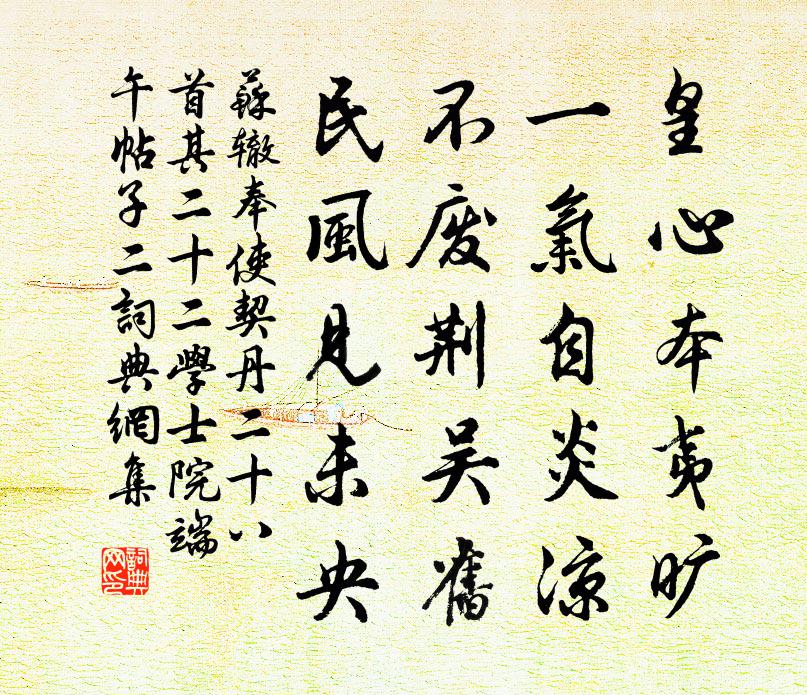 皇心本夷旷
一氣自炎涼
不废荆吴舊
民風見未央
蘇辙奉使契丹二十八
首其二十二學士院端
午帖子二詞典網集
詞典
网印